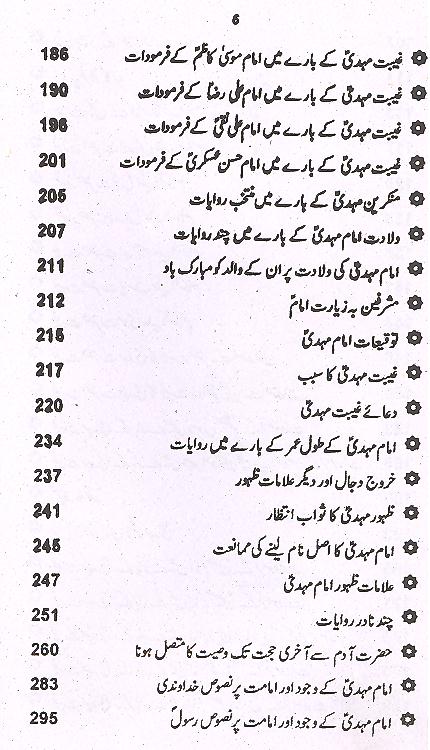 6
غیبت مہدیؑ کے بارے میں امام موسیٰ کاظمؑ کے فرمودات 186
غیبت مہدیؑ کے بارے میں امام علی رضاؑ کے فرمودات 190
غیبت مہدیؑ کے بارے میں امام علی نقیؑ کے فرمودات 196
غیبت مہدیؑ کے بارے میں امام حسن عسکریؑ کے فرمودات 201
منکرین مہدیؑ کے بارے میں منتخب روایات 205
ولادت امام مہدیؑ کے بارے میں چند روایات 207
امام مہدیؑ کی ولادت پر ان کے والد کو مبارک باد 211
مشرفین بہ زیارت امامؑ 212
توقیعات امام مہدیؑ 215
غیبت مہدیؑ کا سبب 217
دعائے غیبت مہدیؑ 220
امام مہدیؑ کے طول عمر کے بارے میں روایات 234
خروج دجال اور دیگر علامات ظہور 237
ظہور مہدیؑ کا ثواب انتظار 241
امام مہدیؑ کا اصل نام لینے کی ممانعت 245
علامات ظہور امام مہدیؑ 247
چند نادر روایات 251
حضرت آدم سے آخری حجت تک وصیت کا متصل ہونا 260
امام مہدیؑ کے وجود اور امامت پر نصوص خداوندی 283
امام مہدیؑ کے وجود اور امامت پر نصوص رسولؐ 295